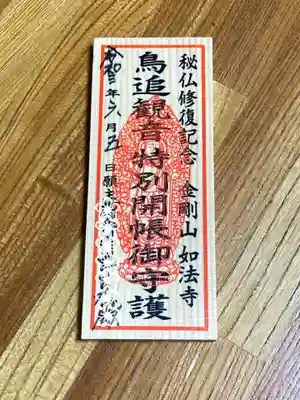 秘仏修復記念 金剛山 如法寺
鳥追観音特別開帳御守護
令和三年六月五日願主